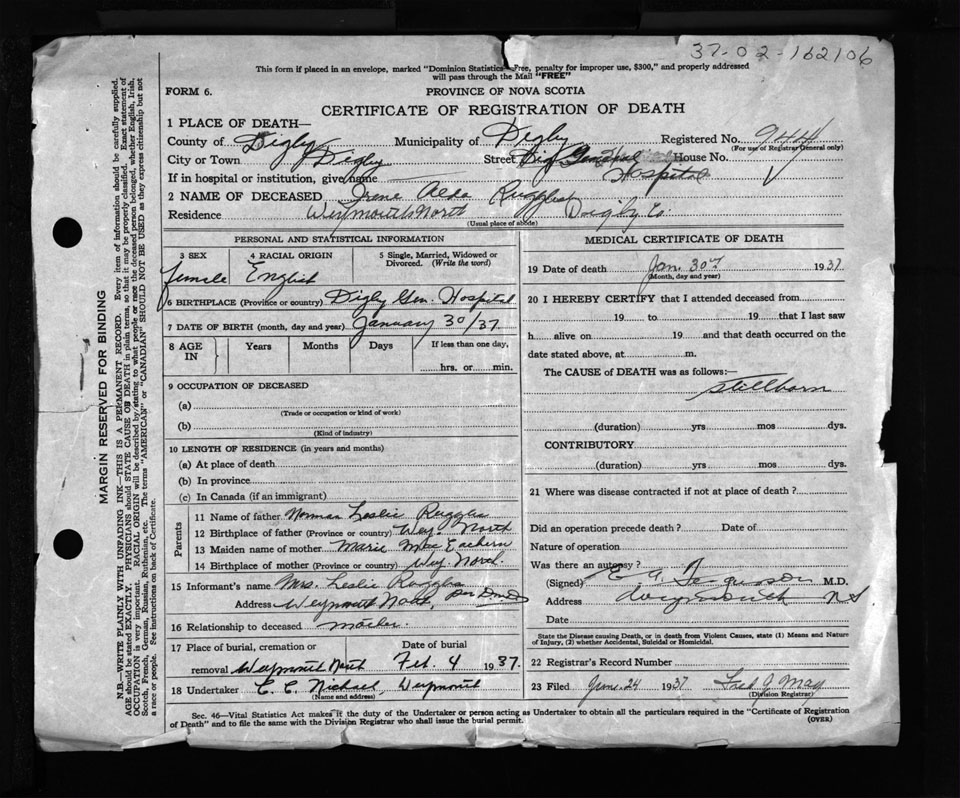 37-02-162106
This form if placed in an envelope, marked "Dominion Statistics—Free, penalty for improper use, $300," and properly addressed
will pass through the Mail "FREE"
FORM 6.
PROVINCE OF NOVA SCOTIA
CERTIFICATE OF REGISTRATION OF DEATH
1 PLACE OF DEATH—
County of Digby Municipality of Digby Registered No. 944
(For use of Registrar General only)
City or Town Digby Street Dig General House No.
If in hospital or institution, give name Hospital
2 NAME OF DECEASED Irene Alda Ruggles
Residence Weymouth North Digby Co.
(Usual place of abode)
PERSONAL AND STATISTICAL INFORMATION
3 SEX 4 RACIAL ORIGIN 5 Single, Married, Widowed or
Divorced. (Write the word)
female English
6 BIRTHPLACE (Province or country) Digby Gen. Hospital
7 DATE OF BIRTH (month, day and year) January 30/37
8 AGE IN Years Months Days If less than one day,
hrs. or min.
9 OCCUPATION OF DECEASED
(a)
(Trade or occupation or kind of work)
(b)
(Kind of industry)
10 LENGTH OF RESIDENCE (in years and months)
(a) At place of death
(b) In province
(c) In Canada (if an immigrant)
Parents
11 Name of father Norman Leslie Ruggles
12 Birthplace of father (Province or country) Wey. North
13 Maiden name of mother Marie Mac Eachern
14 Birthplace of mother (Province or country) Wey North.
15 Informant's name Mrs. Leslie Ruggles
Address Weymouth North,
16 Relationship to deceased mother
17 Place of burial, cremation or Date of burial
removal Weymouth North Feb. 4 1937.
18 Undertaker E. C. Nichael, Weymouth
(Name and address)
MEDICAL CERTIFICATE OF DEATH
19 Date of death Jan. 30th 1937
(Month, day and year)
20 I HEREBY CERTIFY that I attended deceased from
19 to 19 that I last saw
h alive on 19 and that death occurred on the
date stated above, at m.
The CAUSE of DEATH was as follows:—
stillborn
(duration) yrs mos dys.
CONTRIBUTORY
(duration) yrs mos dys.
21 Where was disease contracted if not at place of death?
Did an operation precede death? Date of
Nature of operation
Was there an autopsy?
(Signed) Ferguson M.D.
Address Weymouth NS
Date
State the Disease causing Death, or in death from Violent Causes, state (1) Means and Nature
of Injury, (2) whether Accidental, Suicidal or Homicidal.
22 Registrar's Record Number
23 Filed June 24 1937 Fred J May
(Division Registrar)
Sec. 46—Vital Statistics Act makes it the duty of the Undertaker or person acting as Undertaker to obtain all the particulars required in the "Certificate of Registration
of Death" and to file the same with the Division Registrar who shall issue the burial permit.
(OVER)
MARGIN RESERVED FOR BINDING
N.B.—WRITE PLAINLY WITH UNFADING INK—THIS IS A PERMANENT RECORD. Every item of information should be carefully supplied.
AGE should be stated EXACTLY. PHYSICIANS should STATE CAUSE OF DEATH in plain terms, so that it may be properly classified. Exact statement of
OCCUPATION is very important. RACIAL ORIGIN will be described by stating to what people or race the deceased person belonged, whether English, Irish,
Scotch, French, German, Russian, Ruthenian, etc. The terms "AMERICAN" or "CANADIAN" SHOULD NOT BE USED as they express citizenship but not
a race or people. See instructions on back of Certificate.